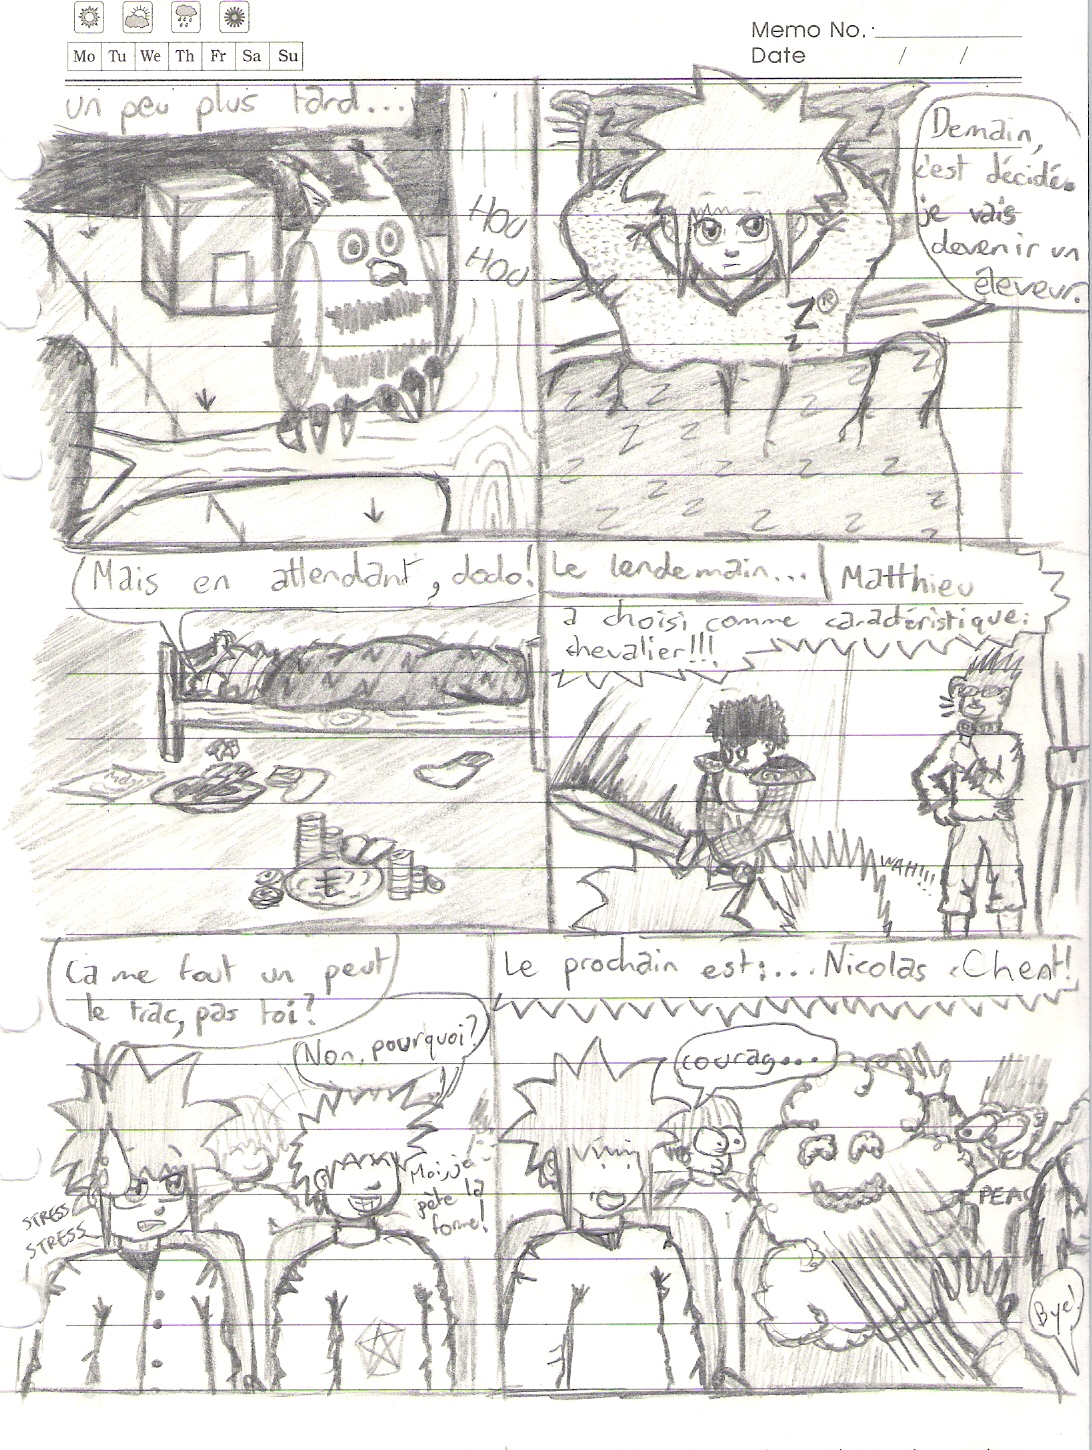 Memo No.:
Date / /
Mo Tu We Th Fr Sa Su
un peu plus tard...
HOU
HOU
Demain,
c'est décidé.
je vais
devenir un
éleveur.
Z®
Z
Mais en attendant, dodo!
Le lendemain...
Matthieu
a choisi comme caractéristique:
chevalier!!!
WAH!!!
Ca me fout un peut
le trac, pas toi?
Non, pourquoi?
STRESS
STRESS
Moi, j'
pète la
forme!
Le prochain est:... Nicolas Chent!
courag...
PEA
Bye!